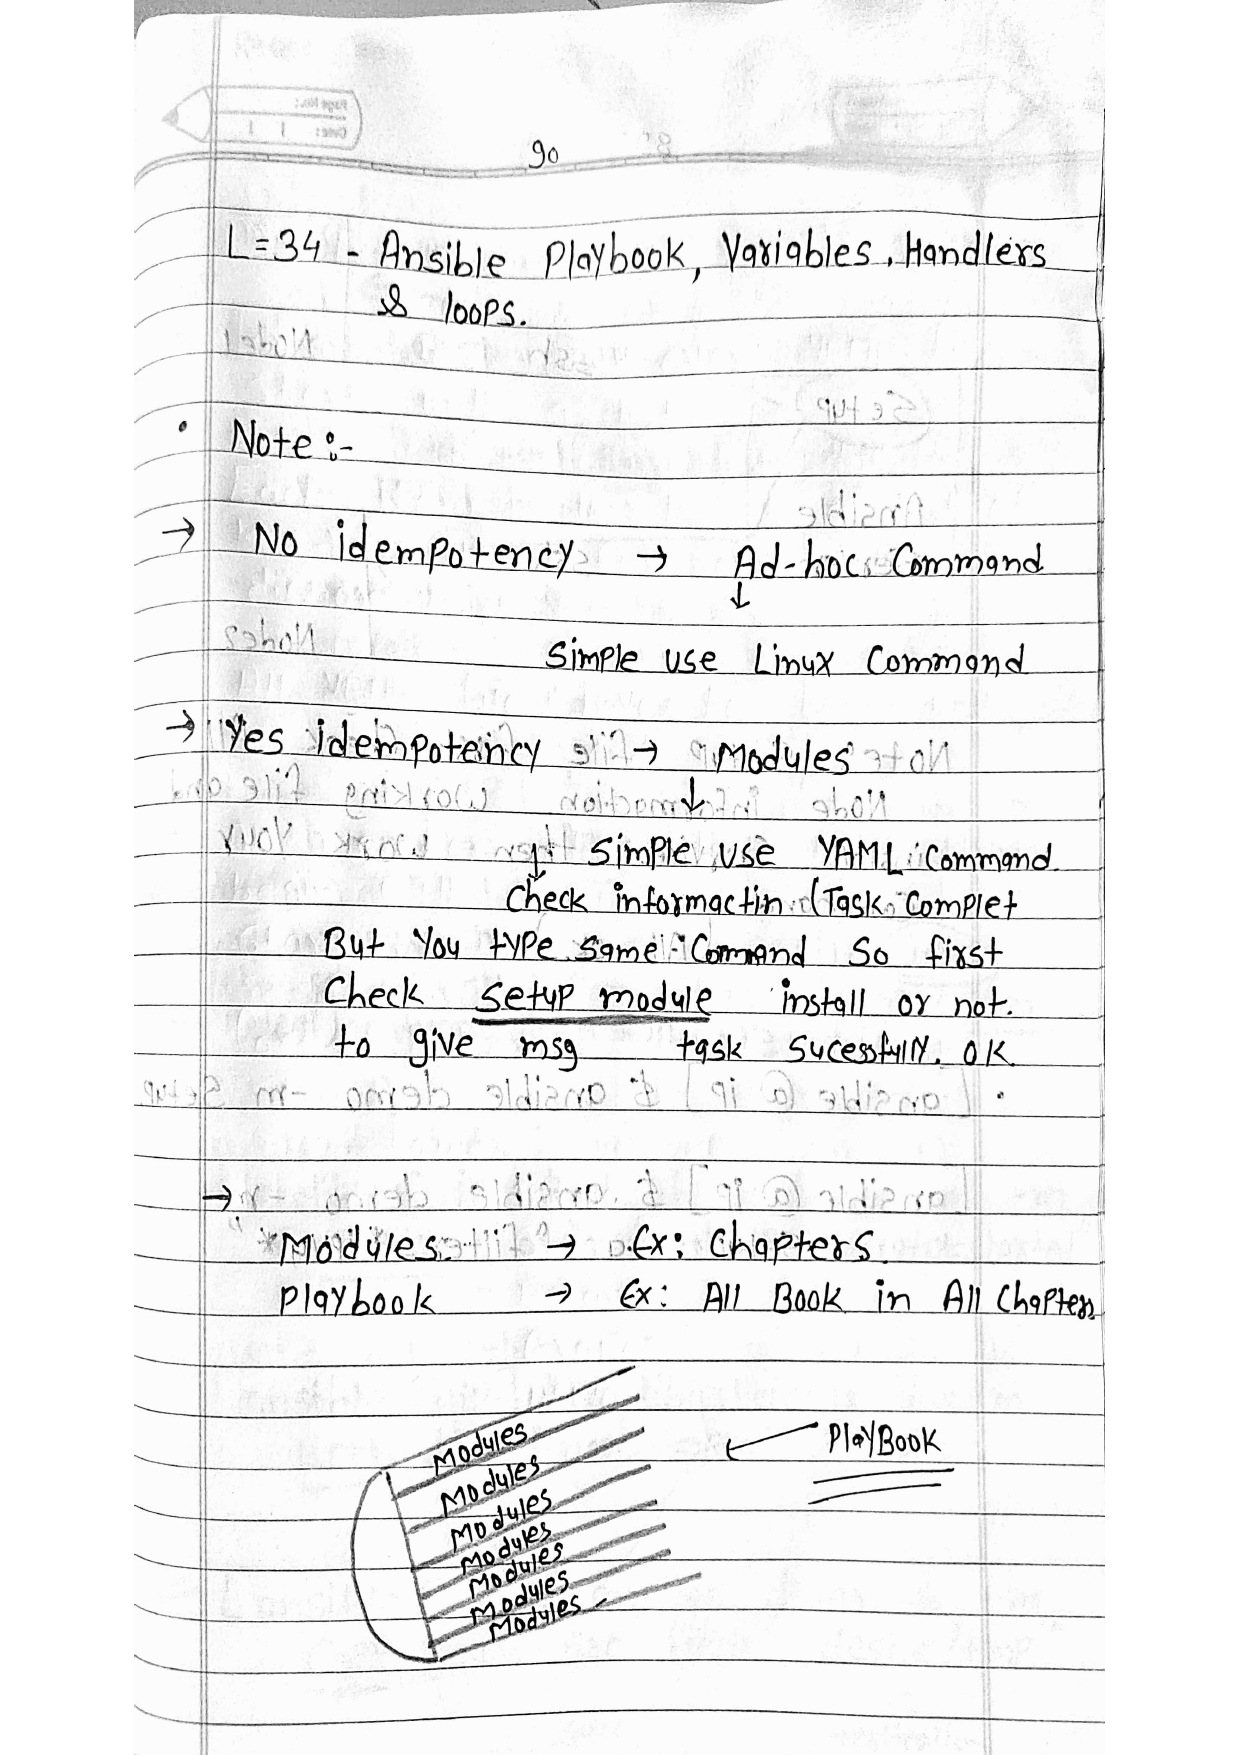 90
L=34 - Ansible Playbook, Variables, Handlers
& loops.
Note :-
→ No idempotency → Ad-hoc Command
↓
Simple use Linux Command
→ Yes idempotency → Modules
↓
↓ Simple use YAML Command.
Check informactin (Task Complet
But You type same Command So first
Check setup module install or not.
to give msg task Sucessfully. OK
→
Modules → Ex: Chapters.
Playbook → Ex: All Book in All Chapters
Modules
Modules
Modules
Modules
Modules
Modules
Modules
PlayBook